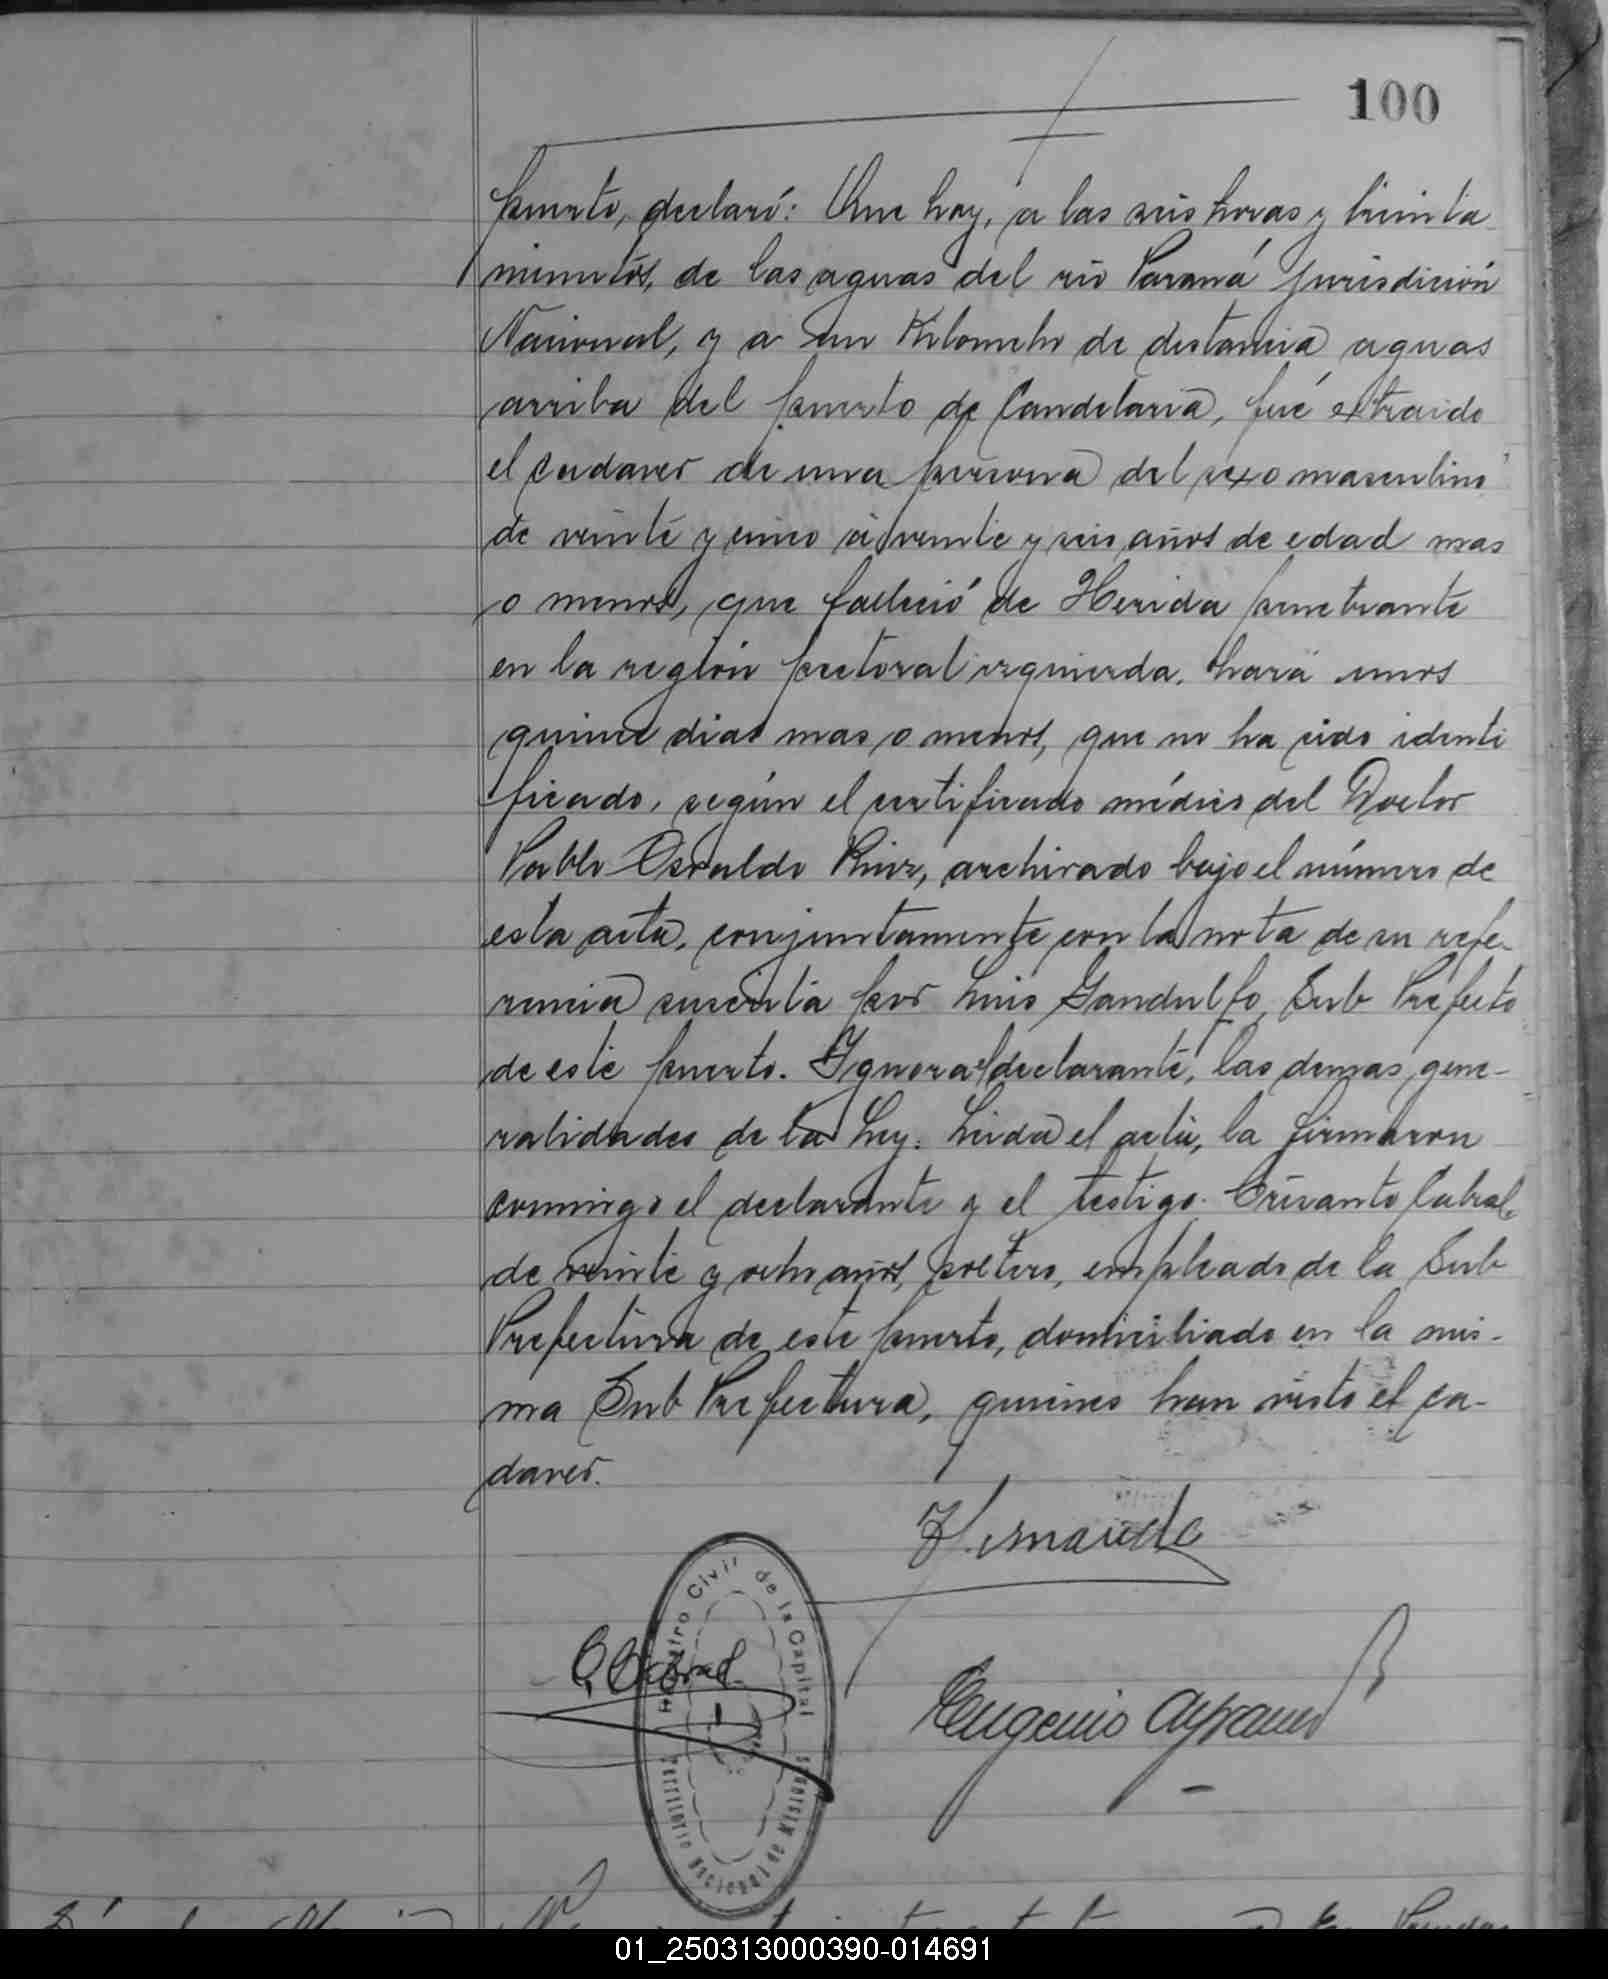 100
puerto, declaró: Que hoy, a las seis horas y treinta
minutos, de las aguas del rio Paraná jurisdición
Nacional, y a un Kilometro de distancia aguas
arriba del puerto de Candelaria, fué extraido
el cadaver de una persona del sexo masculino
de veinte y cinco á veinte y seis años de edad mas
o menos, que falleció de Herida penetrante
en la región pectoral izquierda. hará unos
quince dias mas o menos, que no ha sido identi
ficado, según el certificado médico del Doctor
Pablo Osvaldo Ruiz, archivado bajo el número de
esta acta, conjuntamente con la nota de su refe-
rencia suscrita por Luis Gandulfo Sub Prefecto
de este puerto. Ignora el declarante, las demas gene-
ralidades de la Ley. Leida el acta, la firmaron
conmigo el declarante y el testigo Cabral
de veinte y ocho años, soltero, empleado de la Sub
Prefectura de este puerto, domiciliado en la mis-
ma Sub Prefectura, quienes han visto el ca-
daver.
C. Cabral
Registro Civil de la Capital
Territorio Nacional de Misiones
Eugenio
01_250313000390-014691